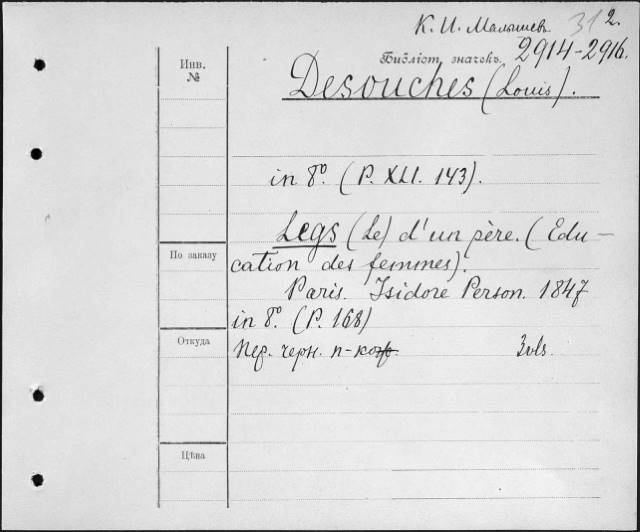 К. И. Малышевъ. 312.
Инв. №
Библіот. значекъ. 2914-2916.
Desouches (Louis).
in 8º. (P. XLI. 143).
Legs (Le) d'un père. (Edu-
cation des femmes).
По заказу
Paris. Isidore Person. 1847
in 8º. (P. 168)
Откуда
Пер. черн. п-кож. 3 vls.
Цѣна